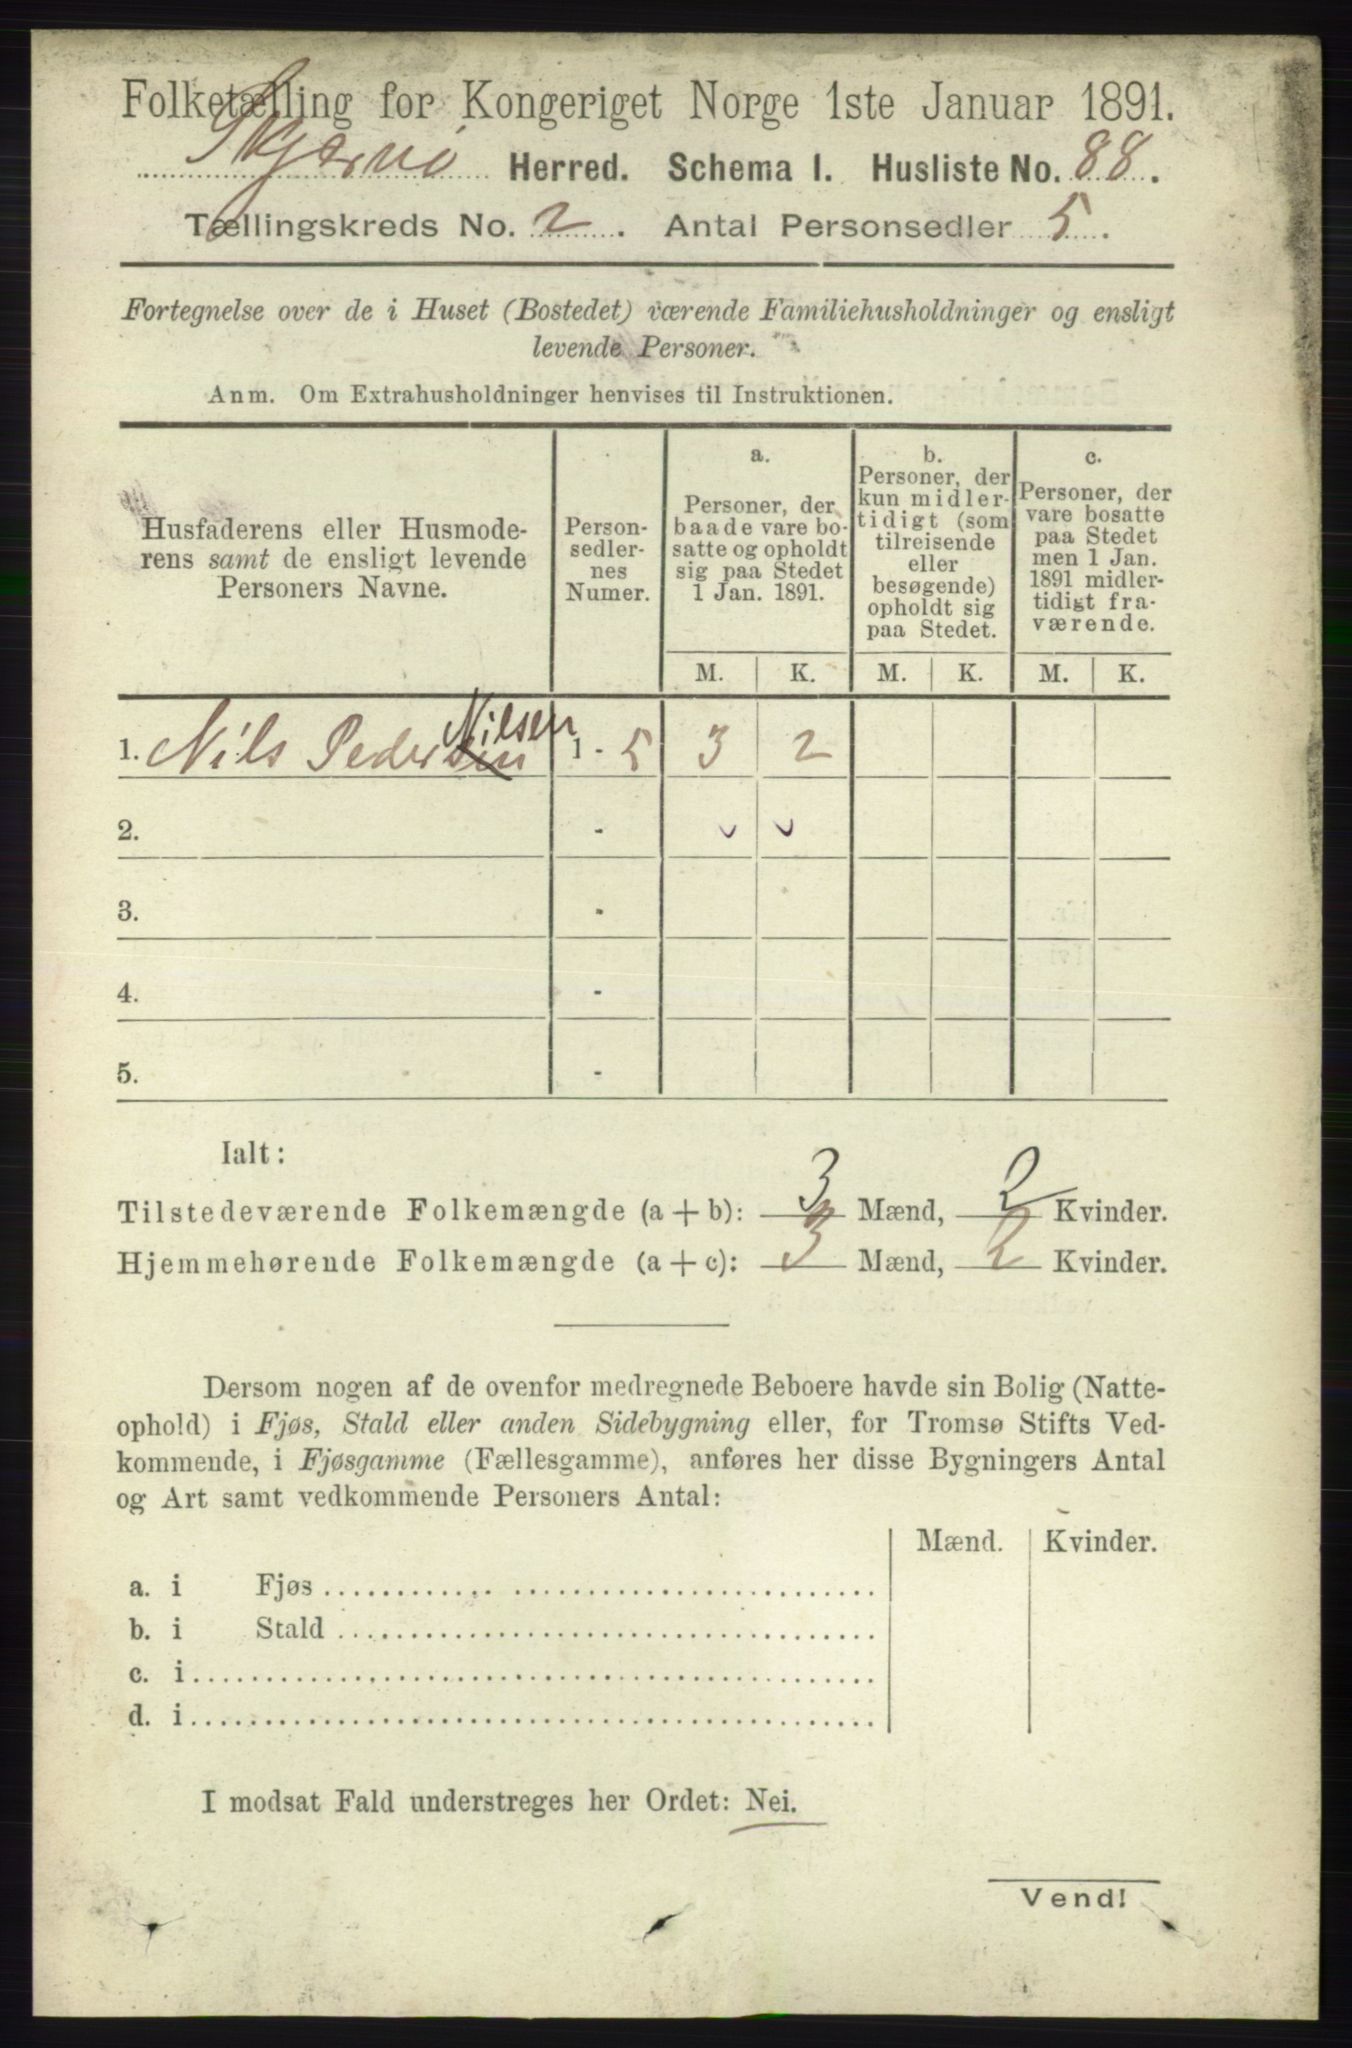 Folketælling for Kongeriget Norge 1ste Januar 1891.
Skjernø Herred. Schema I. Husliste No. 88.
Tællingskreds No. 2. Antal Personsedler 5.
Fortegnelse over de i Huset (Bostedet) værende Familiehusholdninger og ensligt
levende Personer.
Anm. Om Extrahusholdninger henvises til Instruktionen.
Husfaderens eller Husmode-
rens samt de ensligt levende
Personers Navne.
Person-
sedler-
nes
Numer.
a.
Personer, der
baade vare bo-
satte og opholdt
sig paa Stedet
1 Jan. 1891.
b.
Personer, der
kun midler-
tidigt (som
tilreisende
eller
besøgende)
opholdt sig
paa Stedet.
c.
Personer, der
vare bosatte
paa Stedet
men 1 Jan.
1891 midler-
tidigt fra-
værende.
M. K. M. K. M. K.
Nilsen
1. Nils Pedersen 1 - 5 3 2
2. -
3. -
4. -
5. -
Ialt:
Tilstedeværende Folkemængde (a + b): 3 Mænd, 2 Kvinder.
Hjemmehørende Folkemængde (a + c): 3 Mænd, 2 Kvinder.
Dersom nogen af de ovenfor medregnede Beboere havde sin Bolig (Natte-
ophold) i Fjøs, Stald eller anden Sidebygning eller, for Tromsø Stifts Ved-
kommende, i Fjøsgamme (Fællesgamme), anføres her disse Bygningers Antal
og Art samt vedkommende Personers Antal:
Mænd. Kvinder.
a. i Fjøs
b. i Stald
c. i
d. i
I modsat Fald understreges her Ordet: Nei.
Vend!